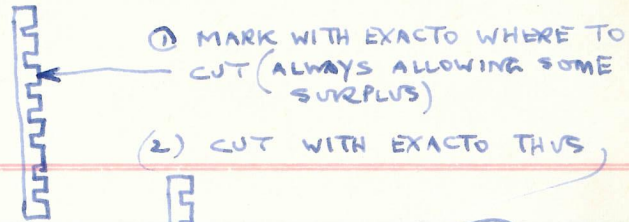 ① MARK WITH EXACTO WHERE TO
CUT (ALWAYS ALLOWING SOME
SURPLUS)
(2) CUT WITH EXACTO THUS